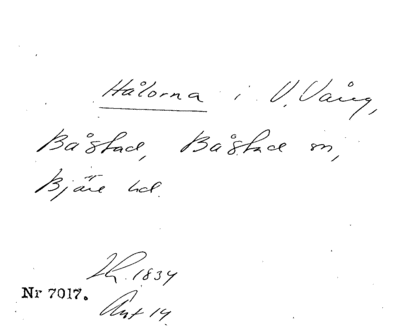 Hålorna i V. Vång,
Båstad, Båstad sn,
Bjäre hd.
1834
Nr 7017.
Ant 14